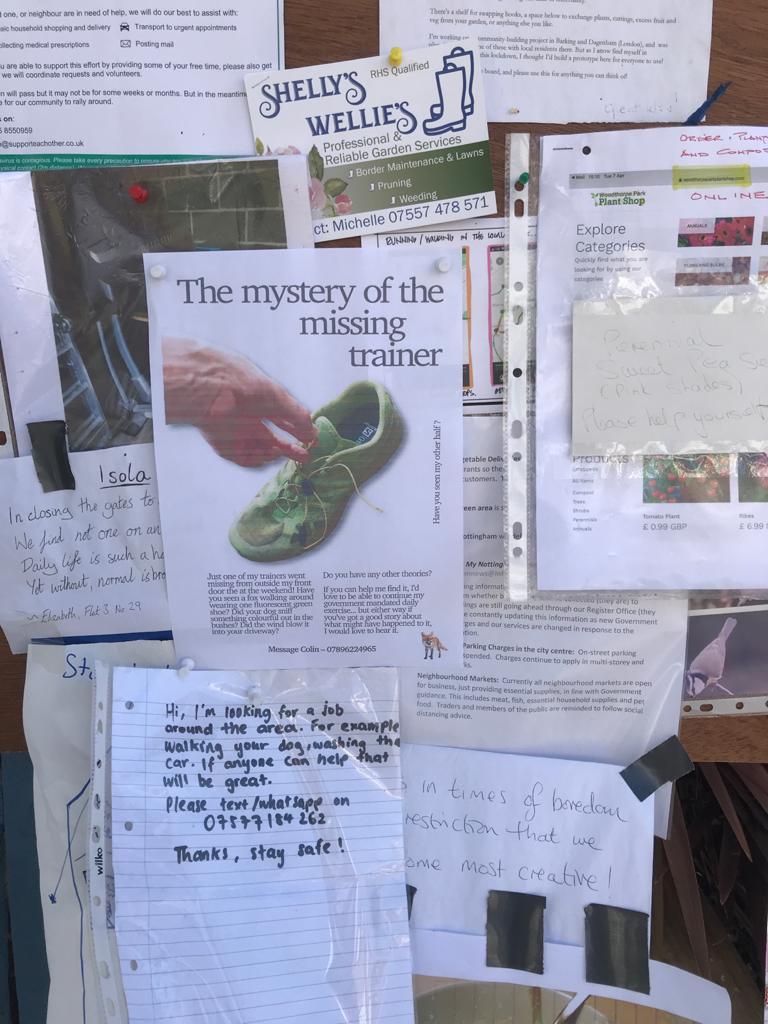 d in one, or neighbour are in need of help, we will do our best to assist with:
household shopping and delivery Transport to urgent appointments
llecting medical prescriptions Posting mail
are able to support this effort by providing some of your free time, please also get
we will coordinate requests and volunteers.
will pass but it may not be for some weeks or months. But in the meantime
for our community to rally around.
s on:
8550959
@supporteachother.co.uk
virus is contagious. Please take every precaution to ensure
There's a shelf for swapping books, a space below to exchange plants, cuttings, excess fruit and
veg from your garden, or anything else you like.
I'm working community-building project in Barking and Dagenham (London), and was
of these with local residents there. But as I now find myself in
this lockdown, I thought I'd build a prototype here for everyone to use!
board, and please use this for anything you can think of!
SHELLY'S
WELLIE'S
RHS Qualified
Professional &
Reliable Garden Services
Border Maintenance & Lawns
Pruning
Weeding
ct: Michelle 07557 478 571
RUNNING / WALKING IN THE LOCAL
ORDER PLANT
AND COMPO
ONLINE
Woodthorpe Park
Plant Shop
Explore
Categories
Quickly find what you
are looking for by using our
categories
ANNUALS
Perennial
Sweet Pea See
(Pink shades)
Please help yourself
PRODUCTS
Compost
Trees
Shrubs
Perennials
Annuals
Tomato Plant
£ 0.99 GBP
Ribes
£ 6.99
The mystery of the
missing
trainer
Have you seen my other half ?
Just one of my trainers went
missing from outside my front
door the at the weekend! Have
you seen a fox walking around
wearing one fluorescent green
shoe? Did your dog sniff
something colourful out in the
bushes? Did the wind blow it
into your driveway?
Do you have any other theories?
If you can help me find it, I'd
love to be able to continue my
government mandated daily
exercise... but either way if
you've got a good story about
what might have happened to it,
I would to love hear it.
Message Colin – 07896224965
Isola
In closing the gates to
We find not one on an
Daily life is such a ha
Yet without, normal is bro
~ Elizabeth, Flat 3 No 29
getable Deliv
rants so the
customers.
een area is s
ottingham w
My Notting
whether b they are) to
ngs are still going ahead through our Register Office (they
constantly updating this information as new Government
ges and our services are changed in response to the
Parking Charges in the city centre: On-street parking
spended. Charges continue to apply in multi-storey and
ks.
Neighbourhood Markets: Currently all neighbourhood markets are open
for business, just providing essential supplies, in line with Government
guidance. This includes meat, fish, essential household supplies and pet
food. Traders and members of the public are reminded to follow social
distancing advice.
St
Hi, I'm looking for a job
around the area. For example
walking your dog, washing the
car. If anyone can help that
will be great.
Please text/whatsapp on
07577184262
Thanks, stay safe!
wilko
in times of boredom
restriction that we
ome most creative!